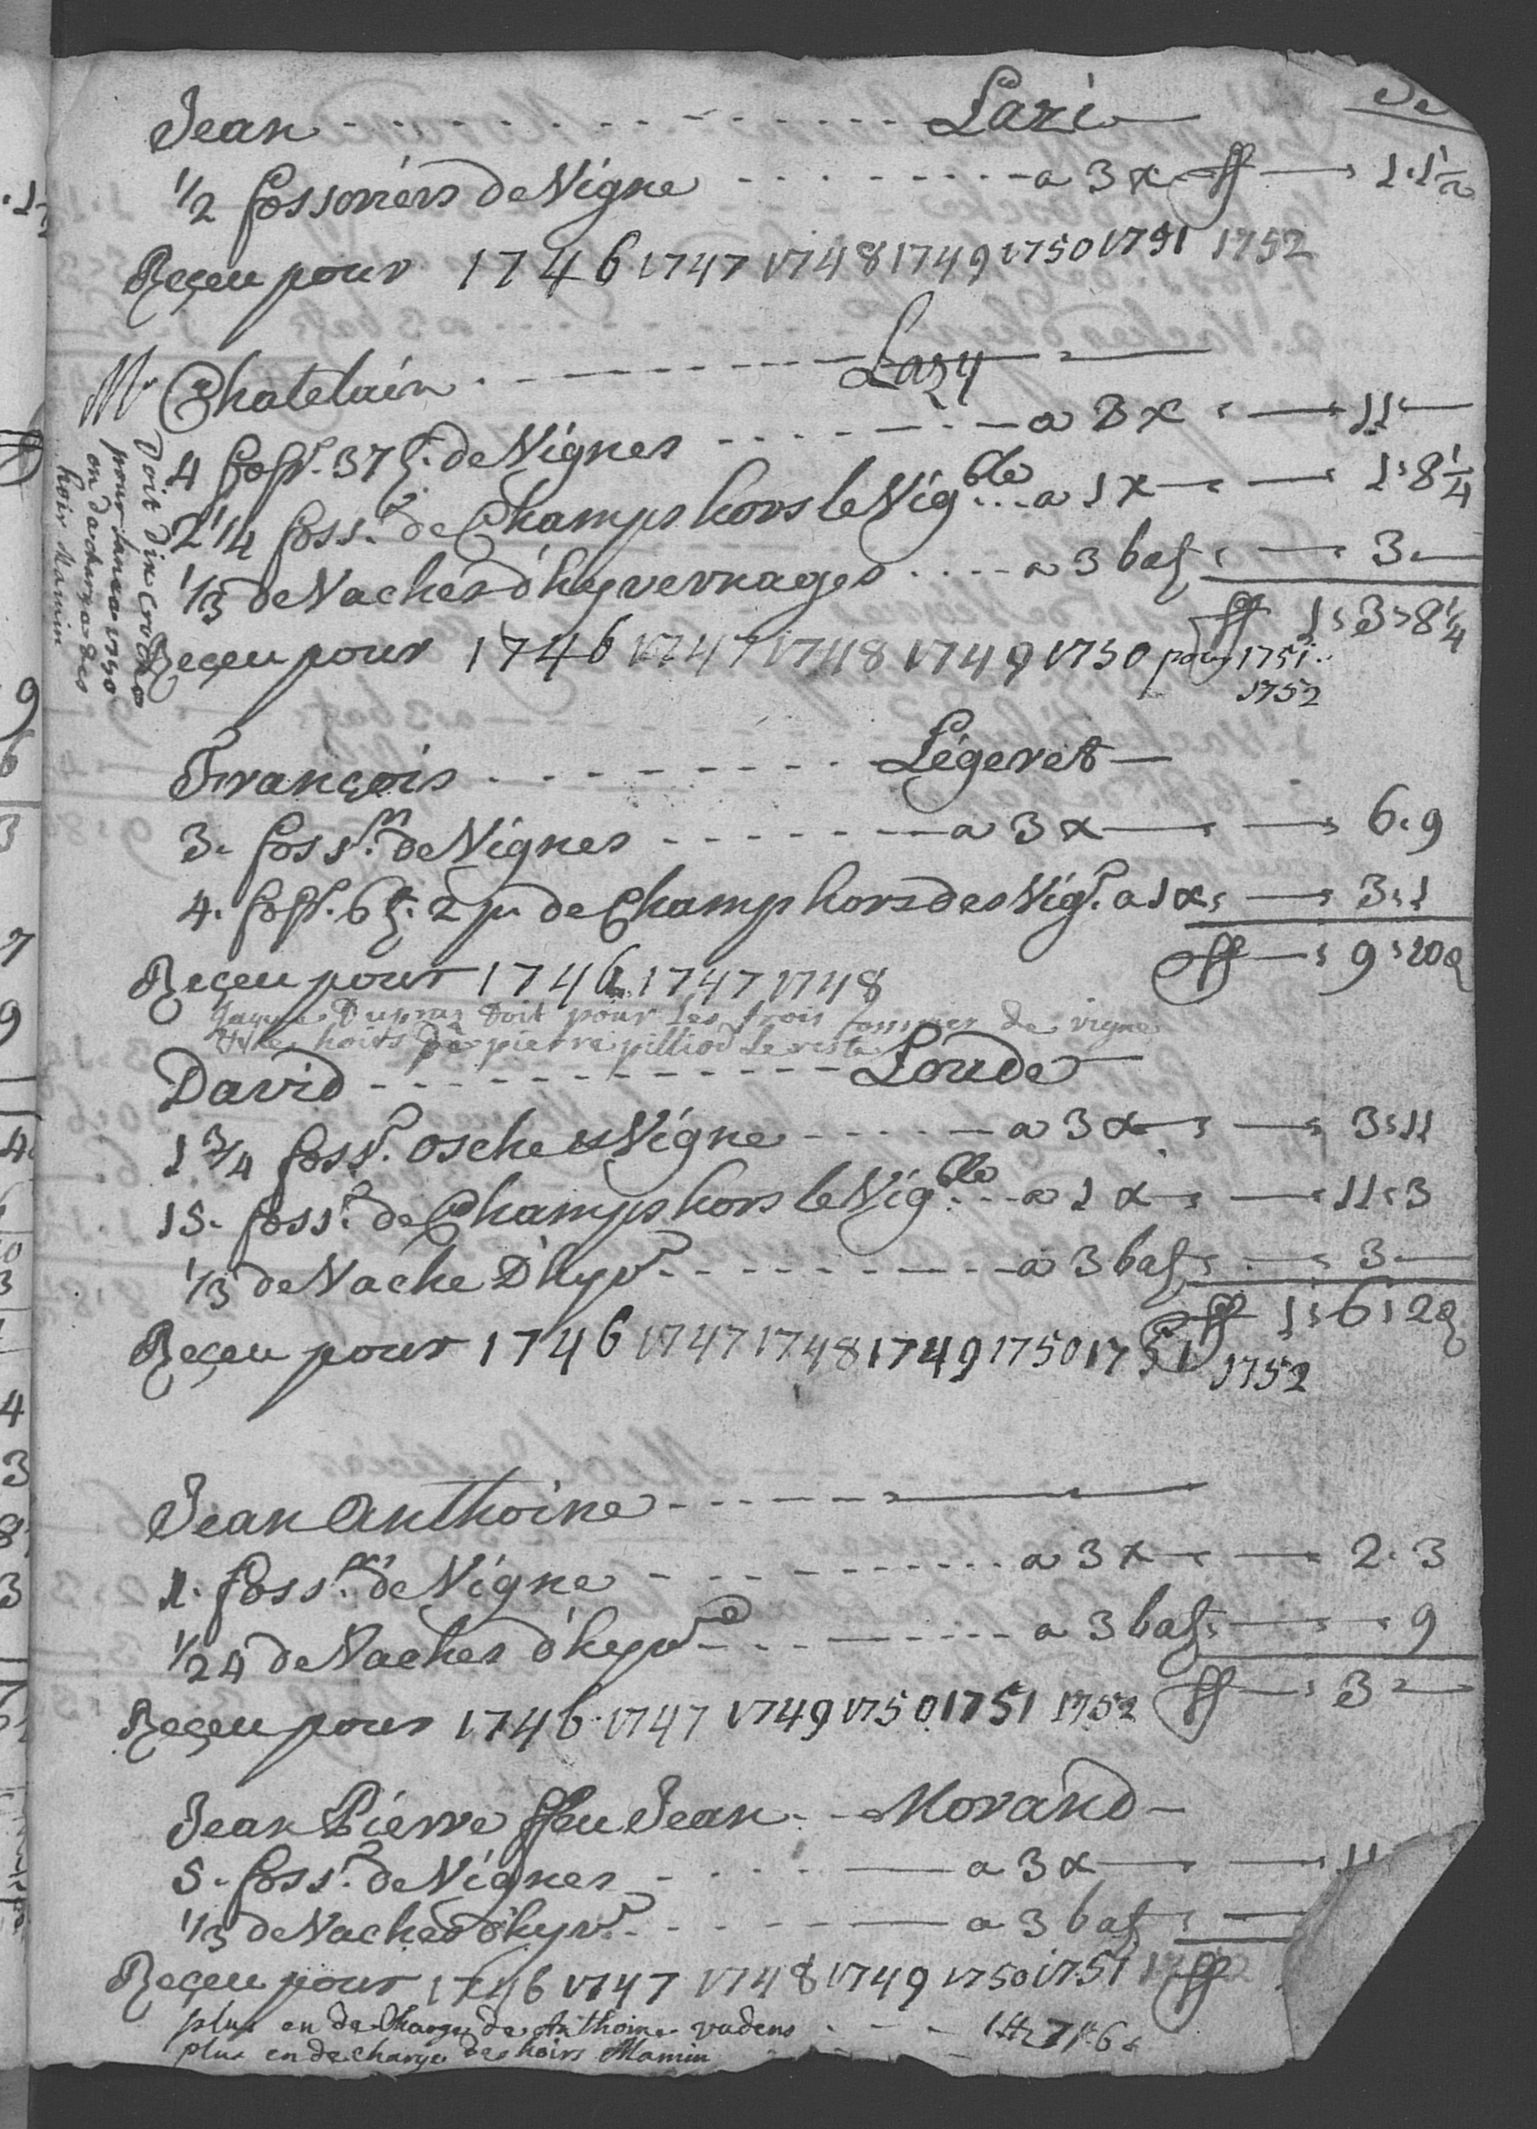 Jean - - - - - - - - - - - - - Lazi
1/2 fossoriers de Vigne - - - - - - - - a 3 x ff — 1.1½
Reçeu pour 1746 1747 1748 1749 1750 1751 1752
Mr Chatelain - - - - - - - - - - - Lazy
4 foss. 37 t. de Vignes - - - - - - - - a 3 x — 11 —
2 1/4 foss.r de Champs hors le Vigble ... a 1 x — 1.8¼
1/3 de Vaches d'heyvernages . . . . - a 3 bat — 3 —
ff 1.3.8¼
Reçeu pour 1746 1747 1748 1749 1750 pour 1751.
1752
Doit dix crod
pour lanee 1750
en dacharge des
hoir Mamin
François - - - - - - - - - Légeret —
3. foss.rs de Vignes - - - - - - - a 3 x — 6.9
4. foss. 6 t. 2 p. de Champ hors des Vig.r a 1 x — 3.1
ff — 9.10
Reçeu pour 1746 1747 1748
Dupraz Doit pour Les trois de vigne
hoirs de pierre pilliod Le reste
David - - - - - - - - - - - - - Loude
1 3/4 foss.r osche et Vigne - - - - - a 3 x — 3.11
15. foss.r de Champs hors le Vigble ... a 1 x — 11.3
1/3 de Vache D'hyv.r - - - - - - - - - a 3 bat — 3 —
ff 1.6.2
Reçeu pour 1746 1747 1748 1749 1750 1751 1752
Jean Anthoine - - - - - —
1. foss.rs de Vigne - - - - - - - - . . . . a 3 x — 2.3
1/24 de Vaches d'heyv.e - - - - - - - a 3 bat — 9
ff — 3 —
Reçeu pour 1746 1747 1749 1750 1751 1752
Jean Pierre ffeu Jean - - Morand —
5. foss.r de Vignes - - - - — a 3 x — 11
1/3 de Vaches d'hyv.r - - - - - — a 3 bat —
Reçeu pour 1746 1747 1748 1749 1750 1751 ff
plus en de Charge de Anthoine vadens . - - -
plus en de charge des hoirs Mamin